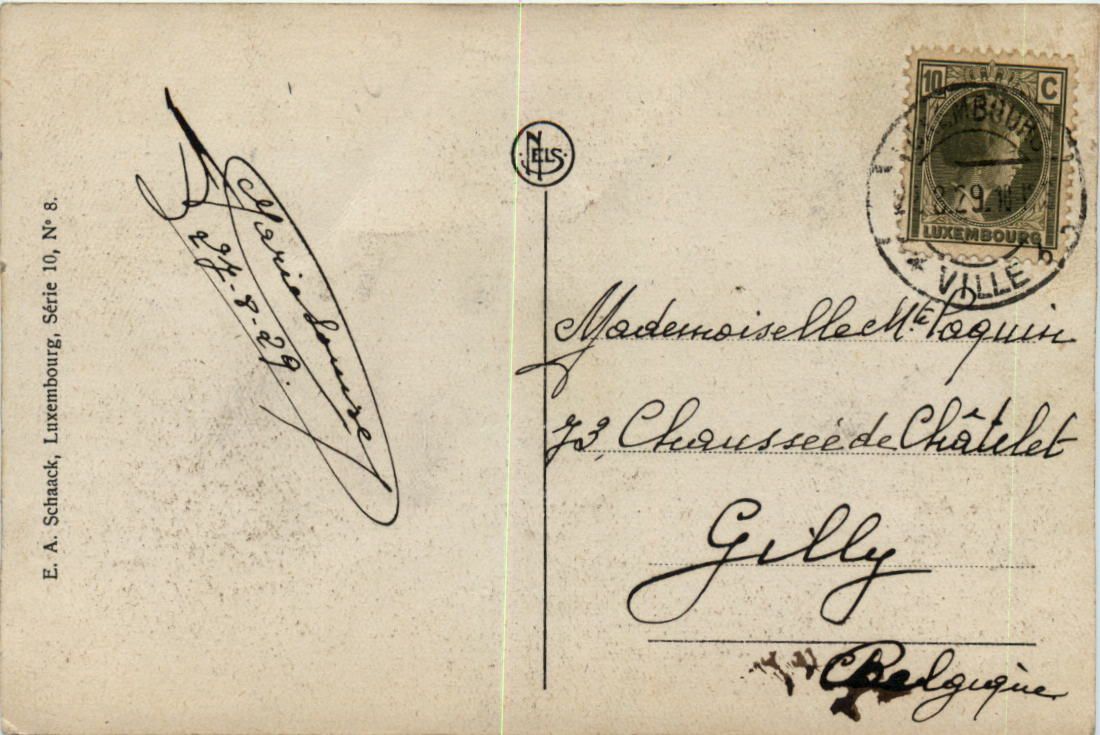 E. A. Schaack, Luxembourg, Série 10, N° 8.
Marie Louise
27-8-29.
NELS
10 C
LUXEMBOURG
LUXEMBOURG
8.29.
* VILLE
Mademoiselle Mte Paquin
73, Chaussée de Châtelet
Gilly
Belgique